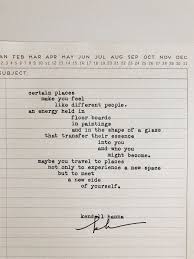 AN FEB MAR APR MAY JUN JUL AUG SEP OCT NOV DEC
SUBJECT
certain places
make you feel
like different people.
an energy held in
floor boards
in paintings
and in the shape of a glass
that transfer their essence
into you
and who you
might become.
maybe you travel to places
not only to experience a new space
but to meet
a new side
of yourself.
kendall hanna
kh